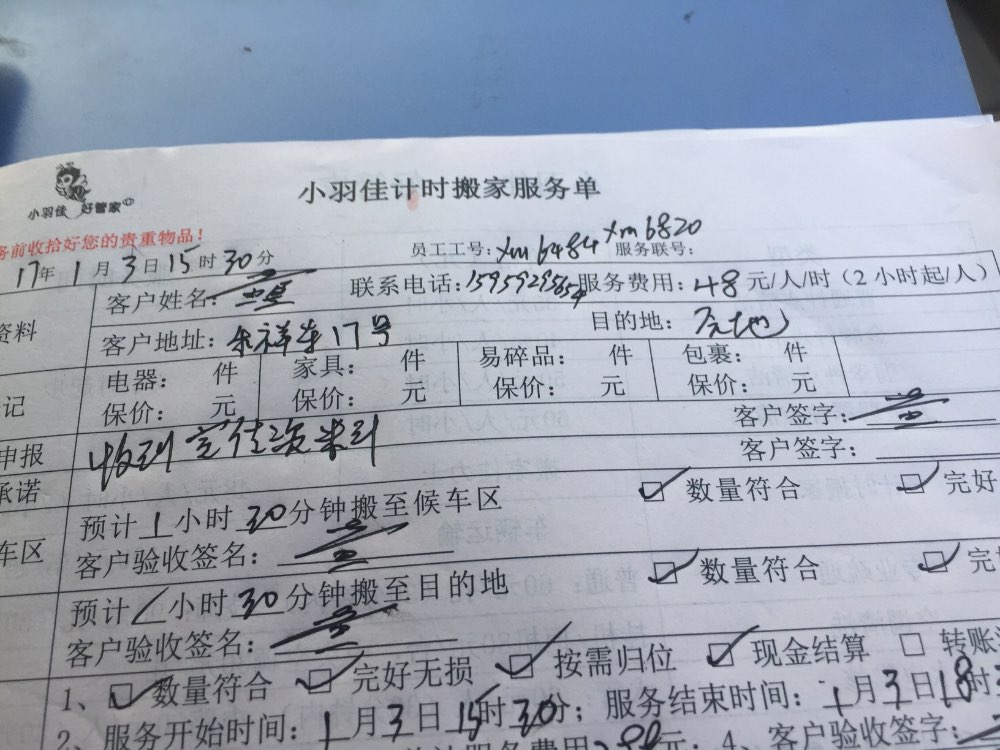 小羽佳计时搬家服务单
小羽佳 好管家
务前收拾好您的贵重物品！
员工工号：xm6484 xm6820 服务联号：
17年1月3日15时30分
资料 客户姓名： 联系电话： 服务费用：48元/人/时（2小时起/人）
客户地址： 17号 目的地：
记 电器： 件 家具： 件 易碎品： 件 包裹： 件
保价： 元 保价： 元 保价： 元 保价： 元
客户签字：
申报 收到
客户签字：
承诺
预计1小时30分钟搬至候车区 数量符合 完好
车区 客户验收签名：
预计1小时30分钟搬至目的地 数量符合 完
客户验收签名：
1、数量符合 完好无损 按需归位 现金结算 转账
2、服务开始时间：1月3日15时30分；服务结束时间：1月3日18时
服务费用 元；4、客户验收签字：